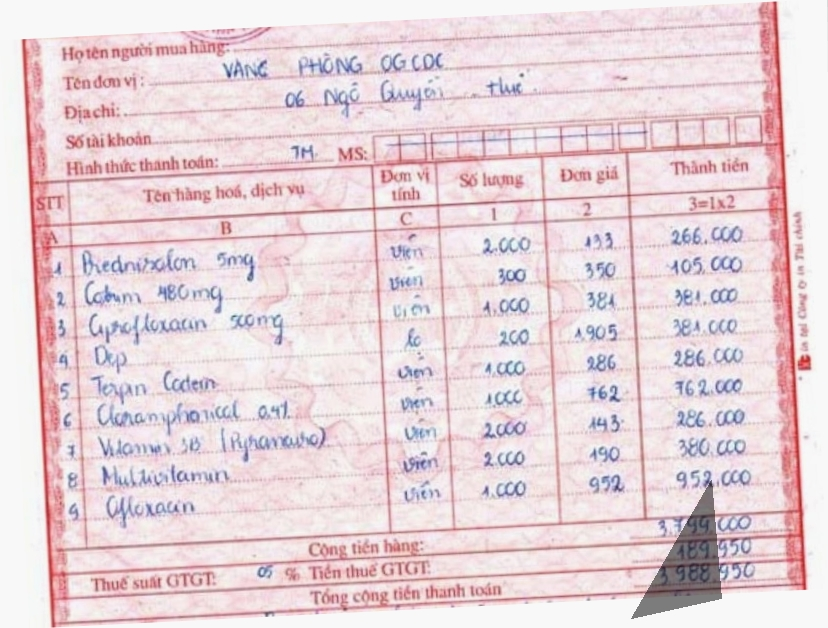 Họ tên người mua hàng:
Tên đơn vị: VĂNG PHÒNG OGCDC
Địa chỉ: 06 Ngô Quyền Huế
Số tài khoản
Hình thức thanh toán: TM. MS:
STT Tên hàng hoá, dịch vụ Đơn vị tính Số lượng Đơn giá Thành tiền
A B C 1 2 3=1x2
1 Prednisolon 5mg viên 2.000 133 266.000
2 480mg viên 300 350 105.000
3 Ciprofloxacin 500mg viên 1.000 381 381.000
4 Dep lọ 200 1.905 381.000
5 Terpin Codein viên 1.000 286 286.000
6 Cloramphenical 0,4% 1.000 762 762.000
7 Vitamin 3B viên 2000 143 286.000
8 Multivitamin viên 2.000 190 380.000
9 Ofloxacin viên 1.000 952 952.000
Cộng tiền hàng: 3.799.000
Thuế suất GTGT: 05 % Tiền thuế GTGT: 189.950
Tổng cộng tiền thanh toán 3.988.950
in tại Công ty in Tài chính